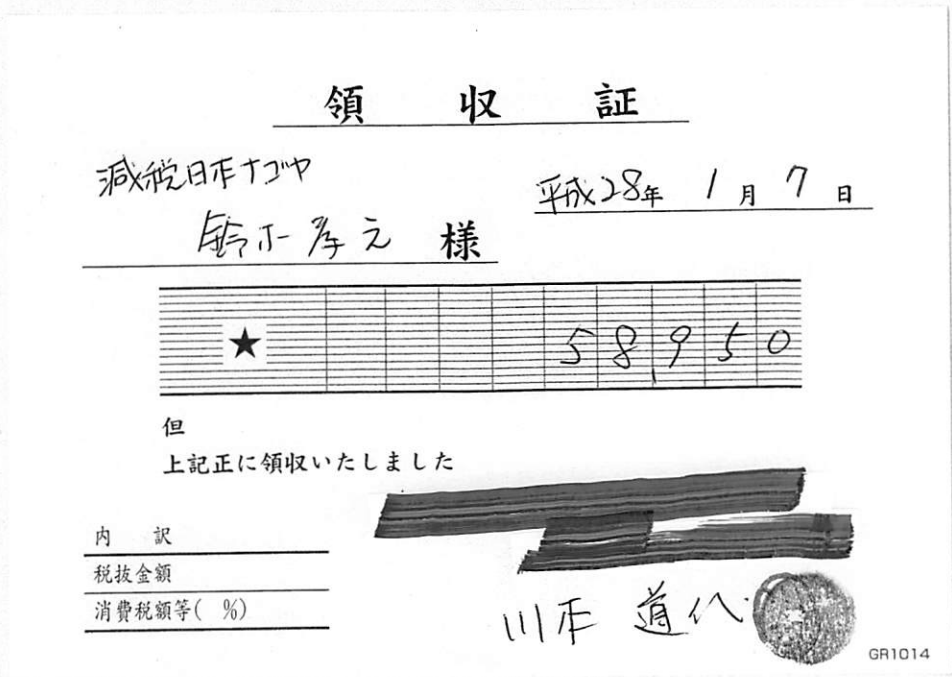 領収証
減税日本ナゴヤ
平成28年 1月 7日
鈴木孝之 様
★ 58,950
但
上記正に領収いたしました
内訳
税抜金額
消費税額等( %)
川本 道代
GR1014